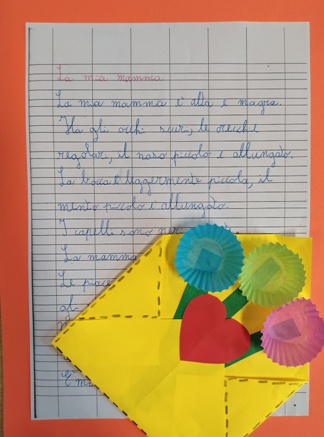 La mia mamma
La mia mamma è alta e magra.
Ha gli occhi scuri, le orecchie
regolari, il naso piccolo e allungato.
La bocca è leggermente piccola, il
mento piccolo e allungato.
I capelli sono
La mamma
Le piace